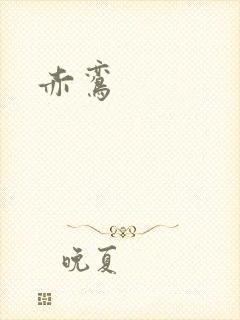 赤鸾
晚夏